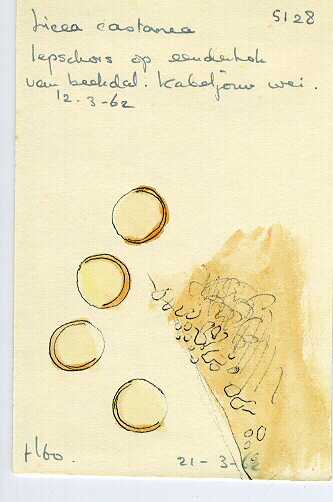 Licea castanea
5128
Iepschors op eendenhok
van beekdal. Kabeljouw wei.
12-3-62
21-3-62